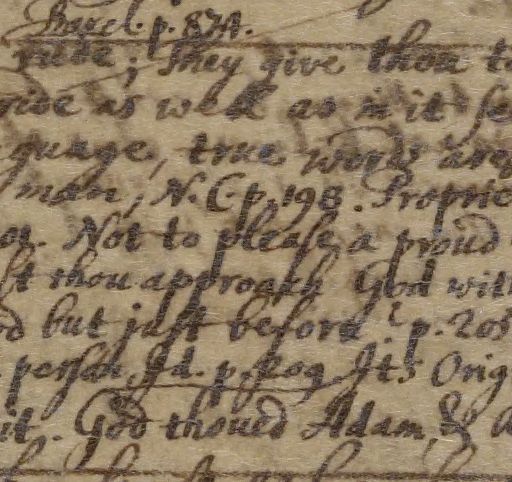 Barcl. p. 874.
rude; They give thou to
as well as in it se
guage, true words are
man, N. C p. 198. Proprie
Not to please a proud
thou approach God with
but just before p. 205
person Id. p. 209 Its Orig
it. God thoued Adam, &